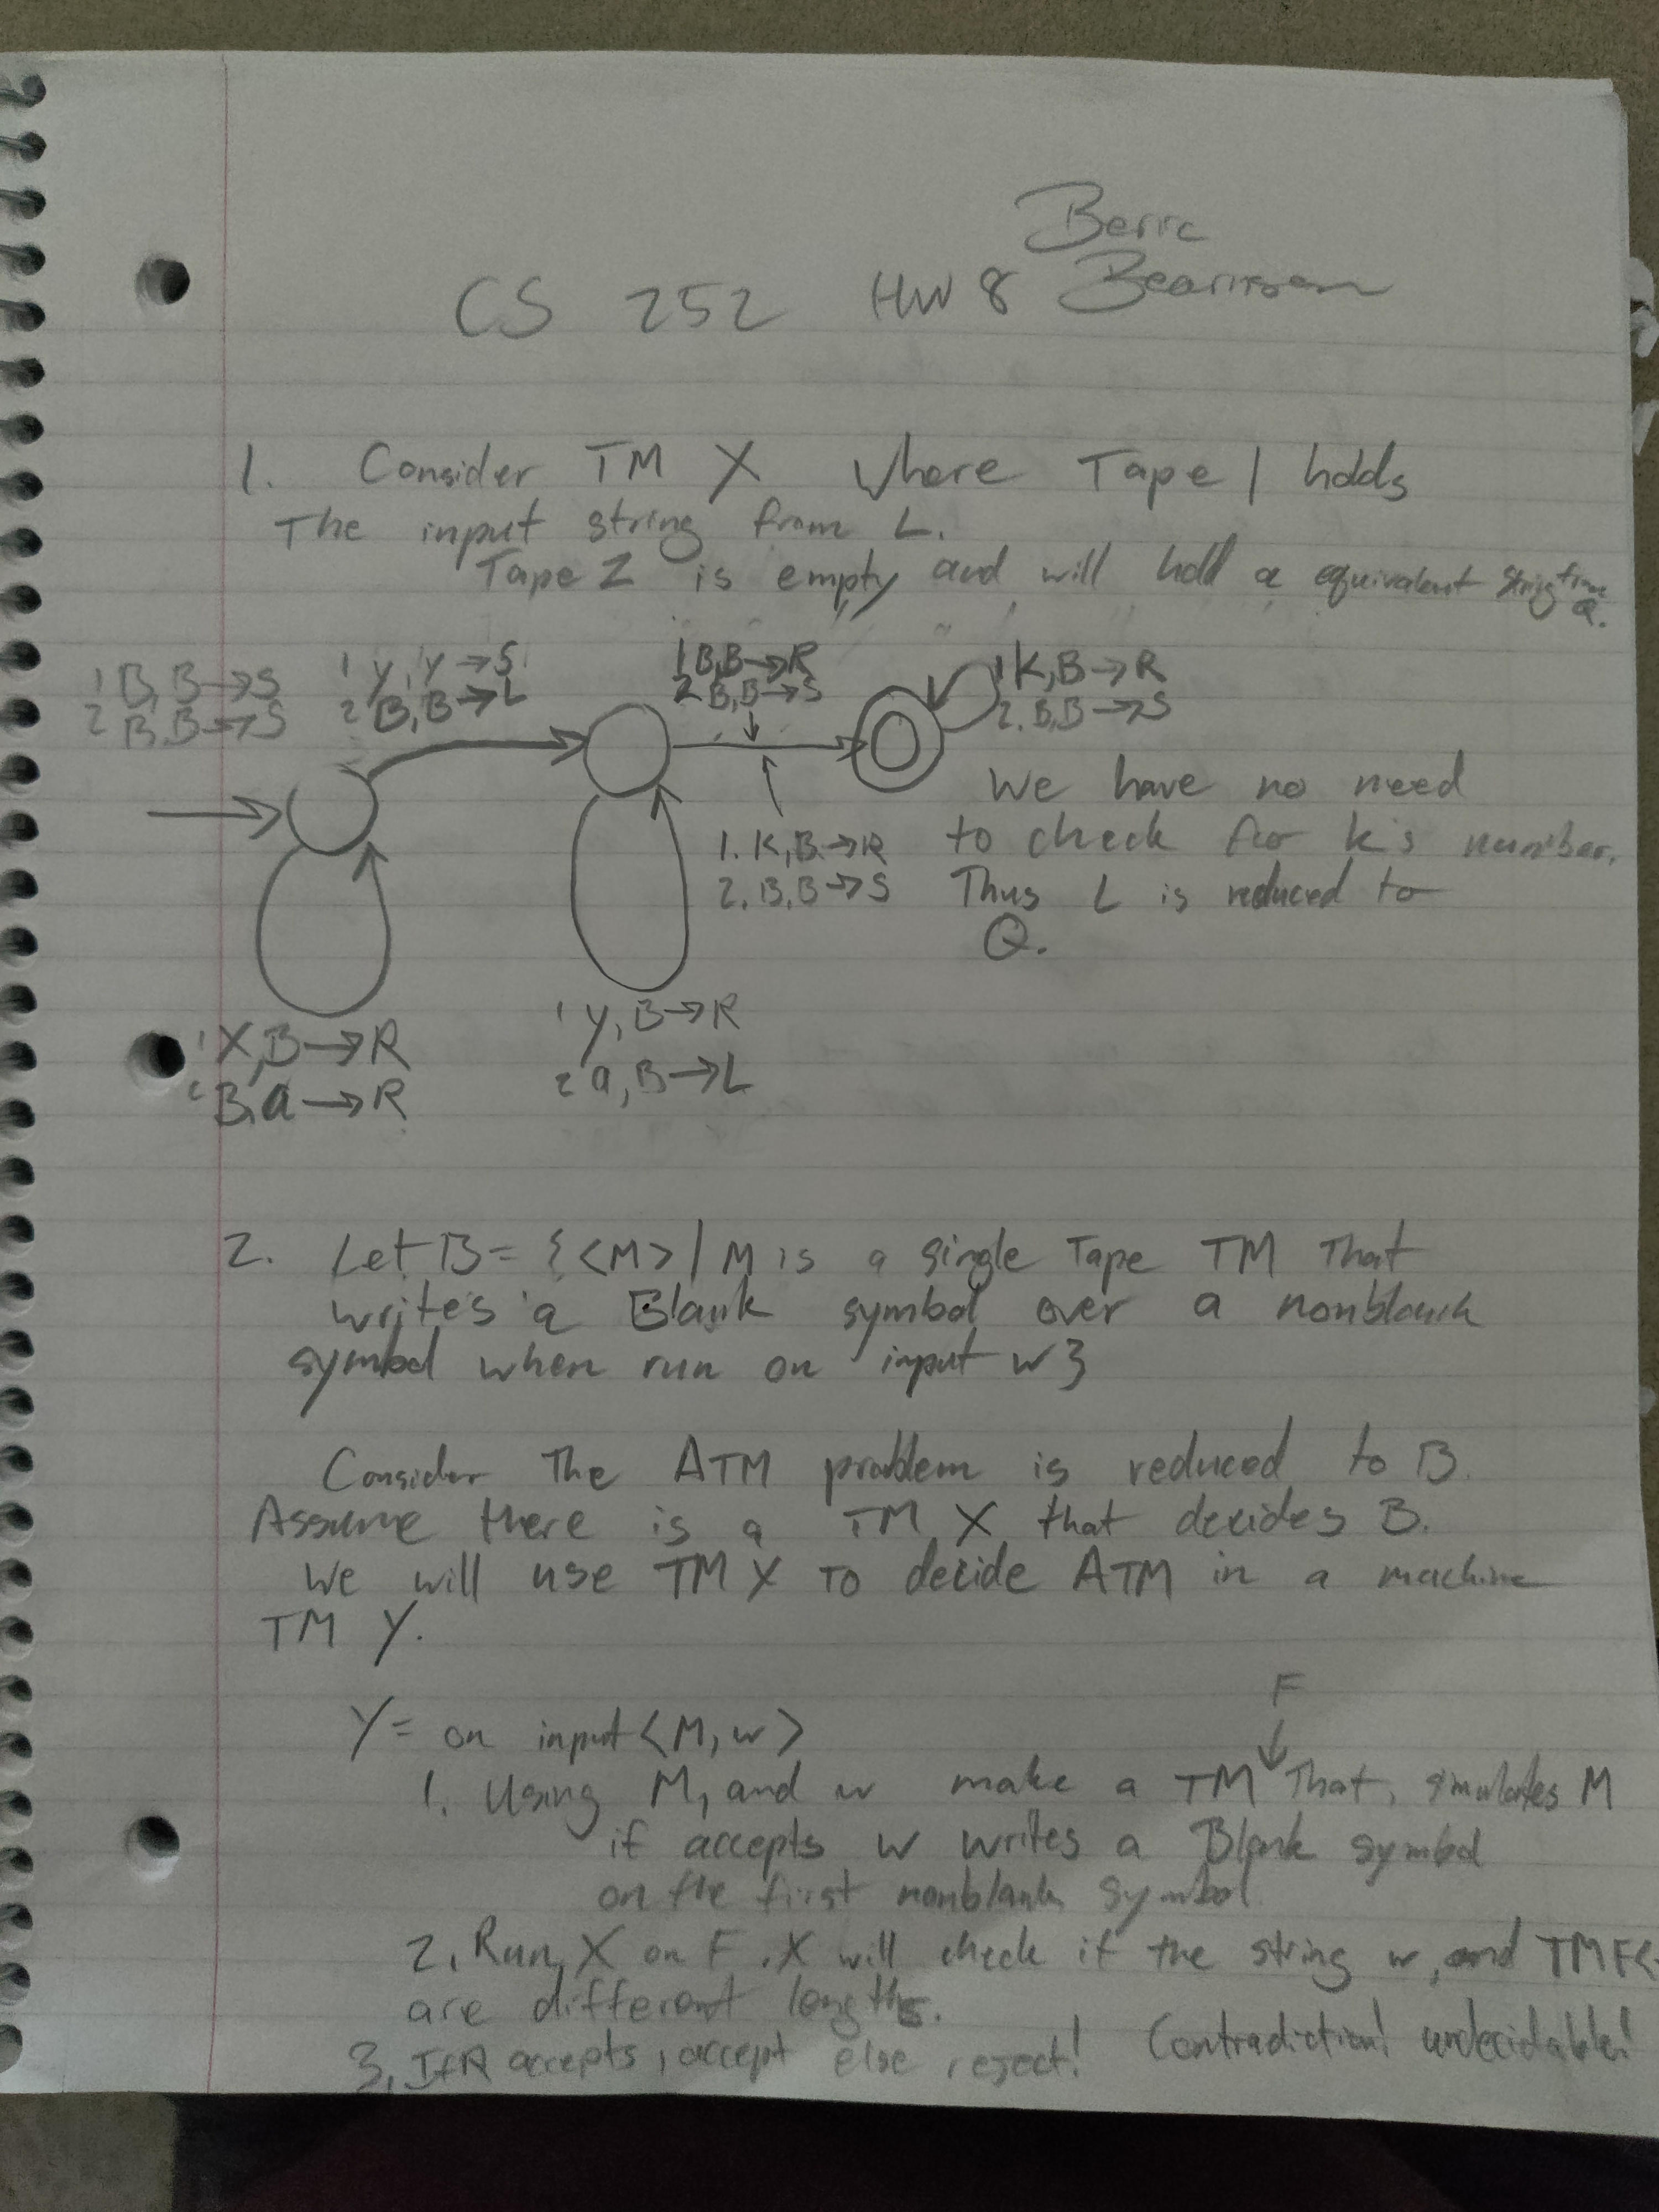 Berrc
CS 252 HW 8
1. Consider TM X where Tape 1 holds
The input string from L.
Tape 2 is empty and will hold a equivalent string from Q.
1 B,B→S
2 B,B→S
1 y,y→S
2 B,B→L
1 B,B→R
2 B,B→S
1 K,B→R
2. B,B→S
1. K,B→R
2. B,B→S
We have no need
to check for k's number.
Thus L is reduced to
Q.
1 X,B→R
2 B,a→R
1 y,B→R
2 a,B→L
2. Let B = {<M> | M is a single Tape TM that
writes a Blank symbol over a nonblank
symbol when run on input w}
Consider The ATM problem is reduced to B.
Assume there is a TM X that decides B.
We will use TM X TO decide ATM in a machine
TM Y.
Y= on input <M, w>
F
1. Using M, and w make a TM ↓ That, simulates M
if accepts w writes a Blank symbol
on the first nonblank symbol
2. Run X on F. X will check if the string w, and TM F<
are different lengths.
3. If R accepts, accept else reject! Contradiction! undecidable!